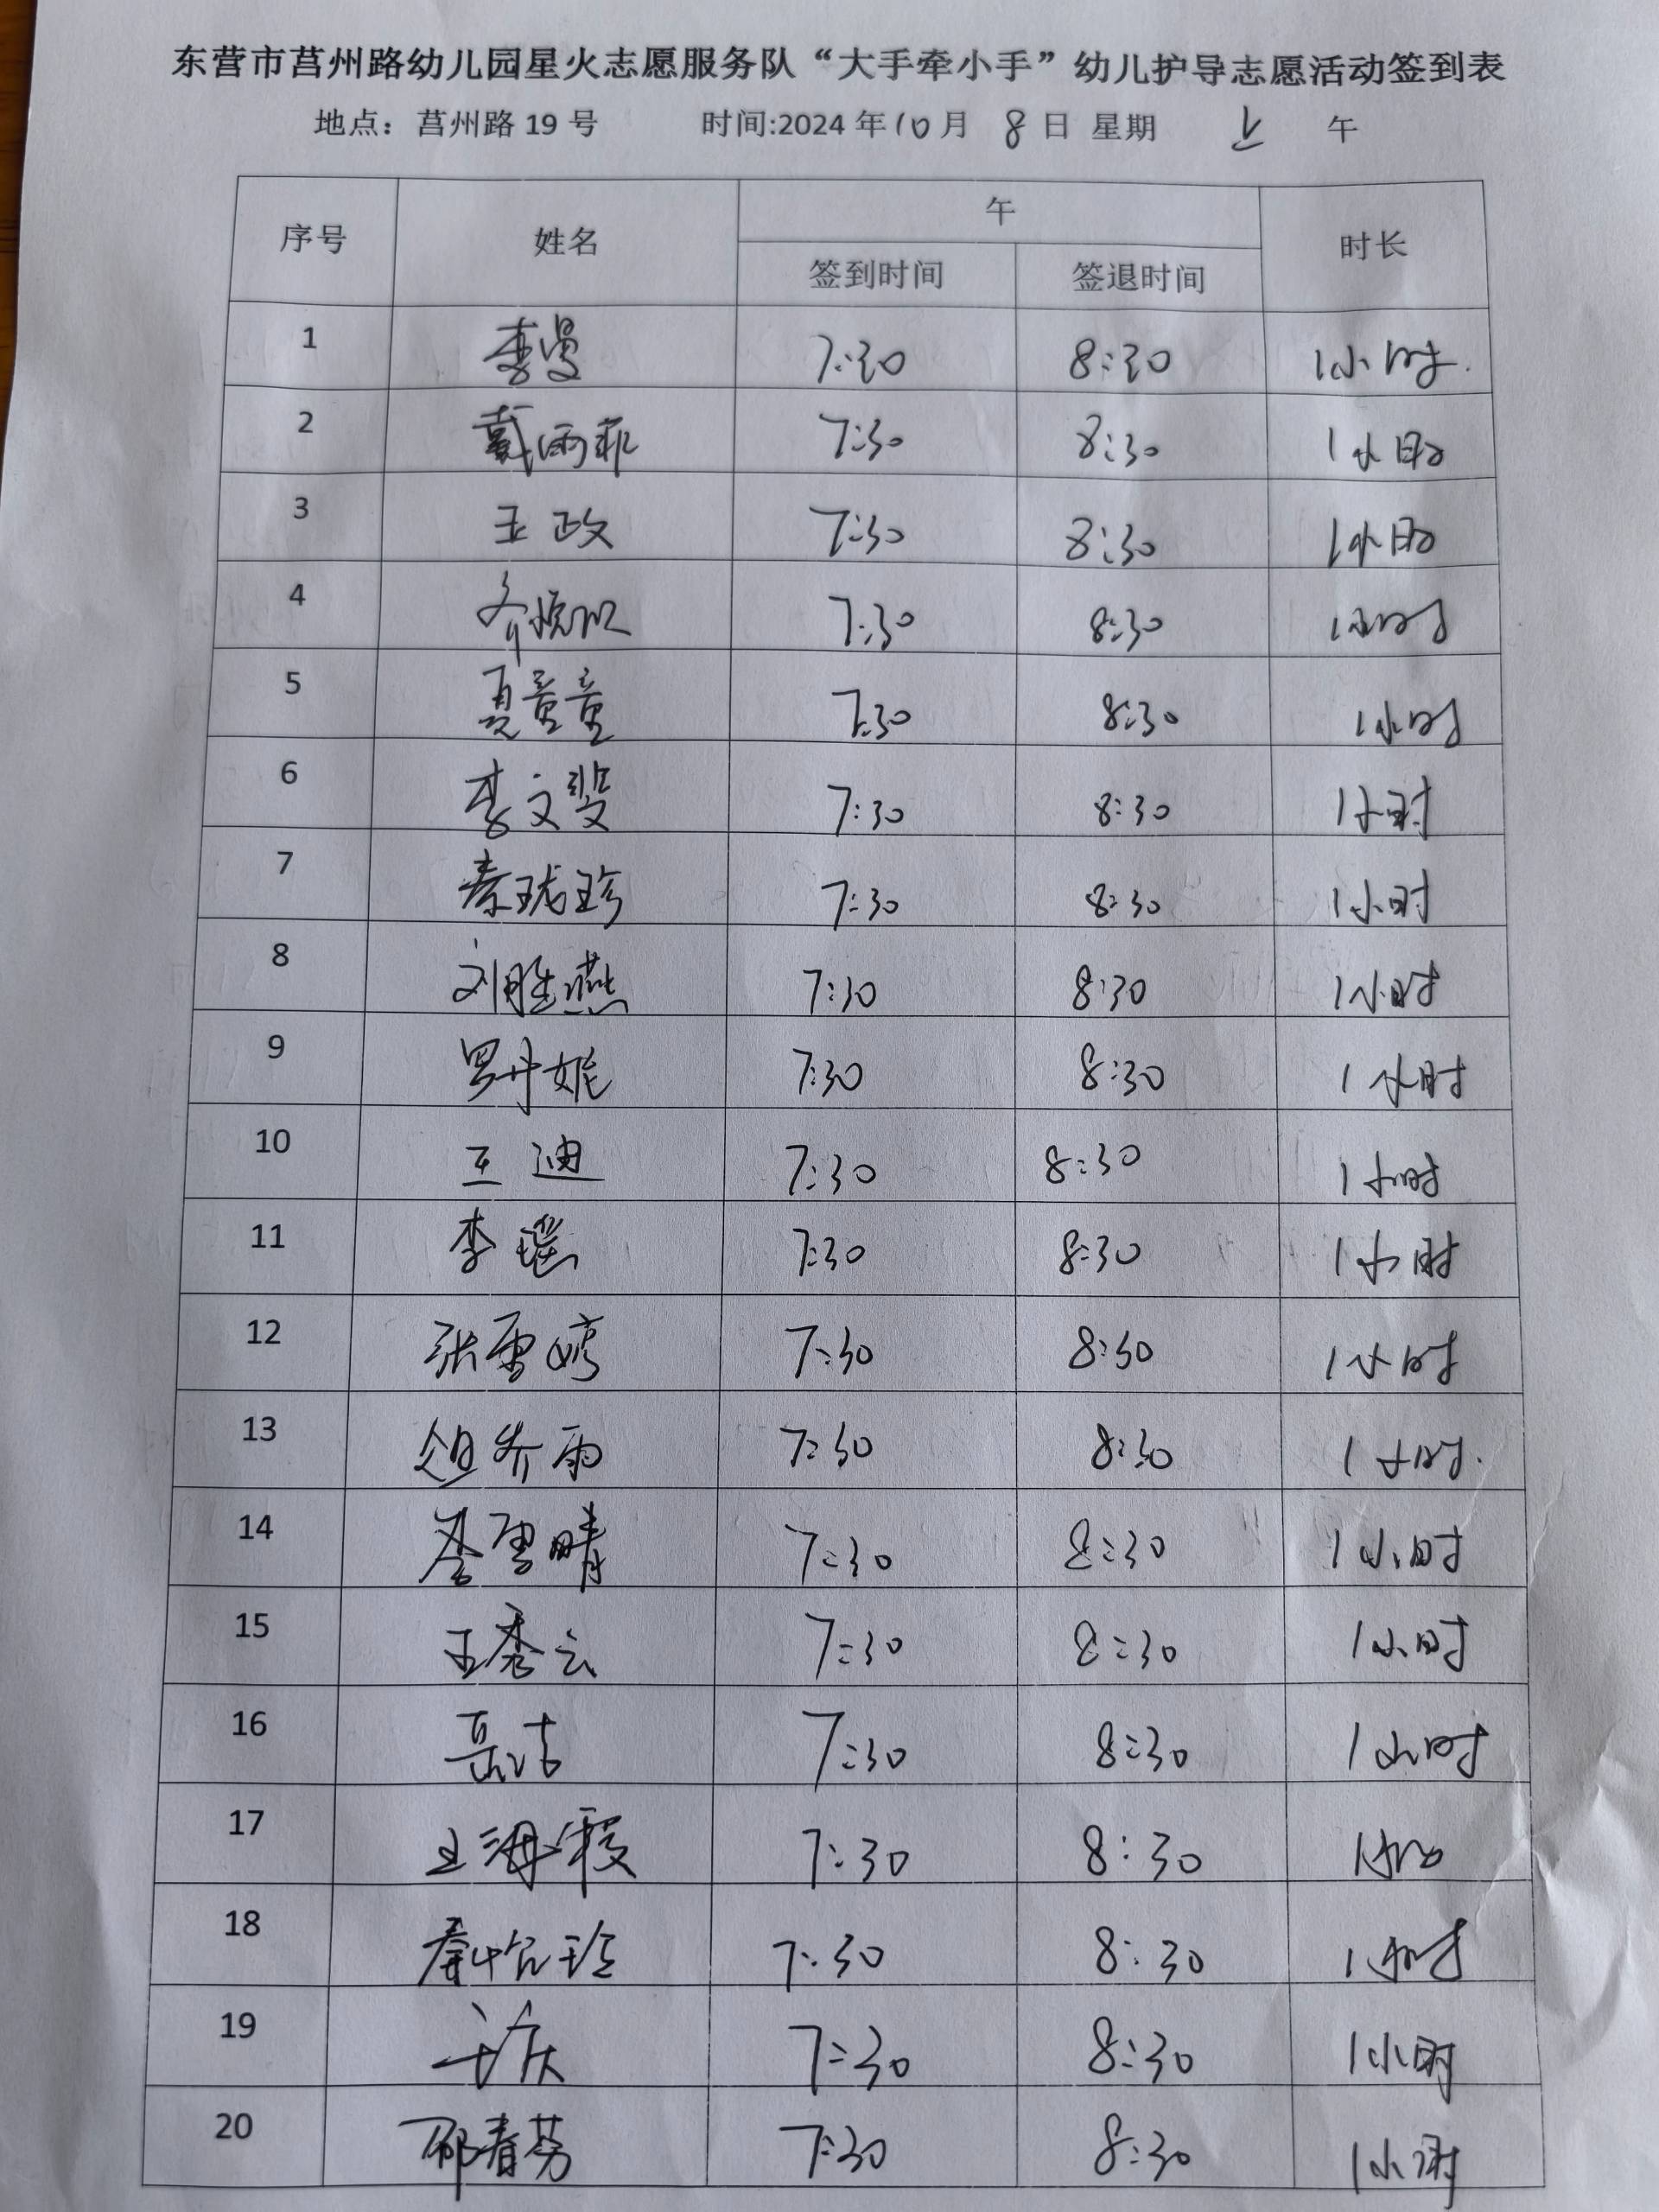 东营市莒州路幼儿园星火志愿服务队“大手牵小手”幼儿护导志愿活动签到表
地点：莒州路 19 号 时间:2024 年 10 月 8 日 星期 上 午
序号 姓名 午 时长
签到时间 签退时间
1 李曼 7:30 8:30 1小时.
2 戴雨菲 7:30 8:30 1小时
3 王政 7:30 8:30 1小时
4 7:30 8:30 1小时
5 夏童童 7:30 8:30 1小时
6 李文斐 7:30 8:30 1小时
7 秦珑珍 7:30 8:30 1小时
8 刘胜燕 7:30 8:30 1小时
9 罗丹妮 7:30 8:30 1小时
10 王迪 7:30 8:30 1小时
11 李瑶 7:30 8:30 1小时
12 张雪婷 7:30 8:30 1小时
13 7:30 8:30 1小时.
14 李雪晴 7:30 8:30 1小时
15 王秀云 7:30 8:30 1小时
16 聂洁 7:30 8:30 1小时
17 王海霞 7:30 8:30 1小时
18 7:30 8:30 1小时
19 7:30 8:30 1小时
20 邴春芳 7:30 8:30 1小时